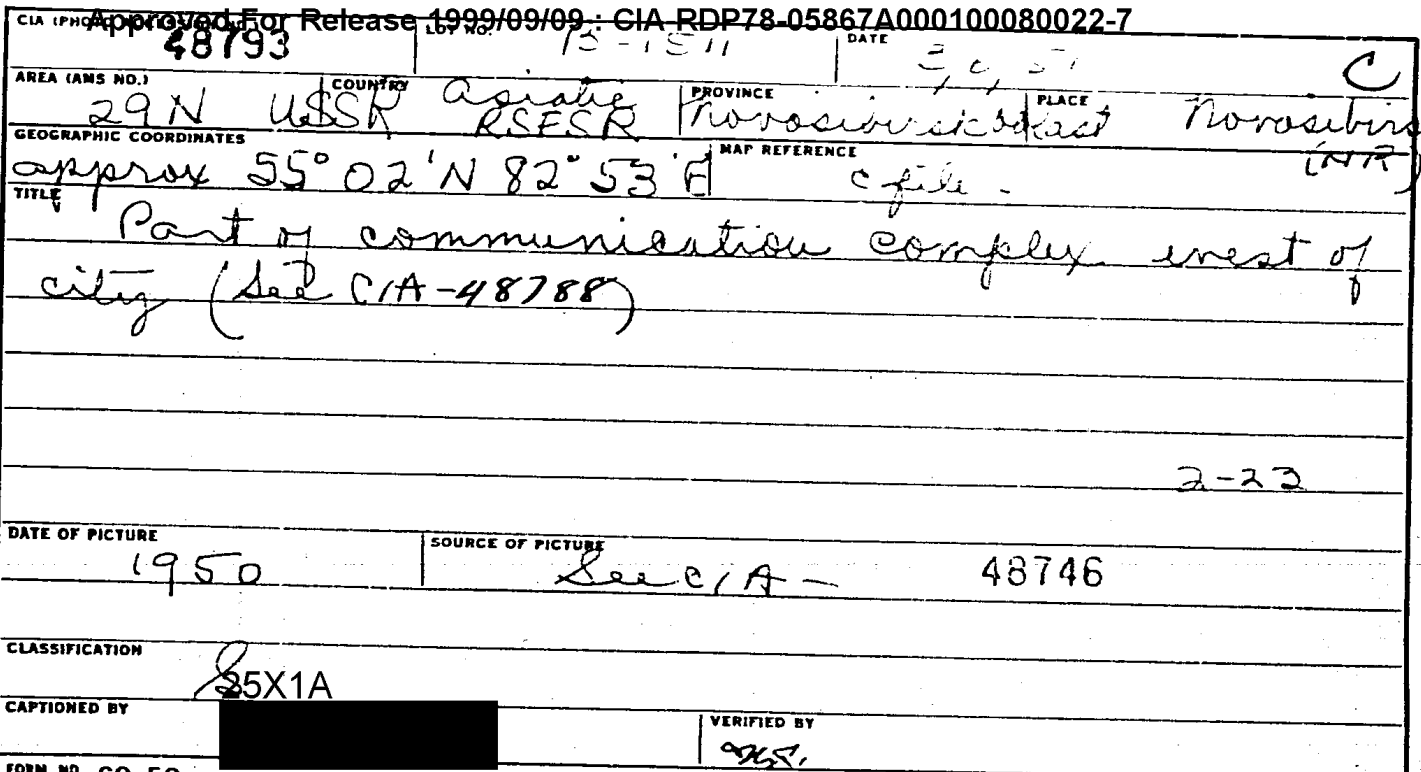 Approved For Release 1999/09/09 : CIA-RDP78-05867A000100080022-7
CIA (PHO
48793
LOT NO.
DATE
C
AREA (AMS NO.)
29N
COUNTRY
USSR Asiatic RSFSR
PROVINCE
Novosibirsk Oblast
PLACE
Novosibirs
(NR)
GEOGRAPHIC COORDINATES
approx 55° 02'N 82° 53'E
MAP REFERENCE
c file -
TITLE
Part of communication complex west of
city (See CIA-48788)
2-23
DATE OF PICTURE
1950
SOURCE OF PICTURE
See CIA - 48746
CLASSIFICATION
S
25X1A
CAPTIONED BY
VERIFIED BY
FORM NO.